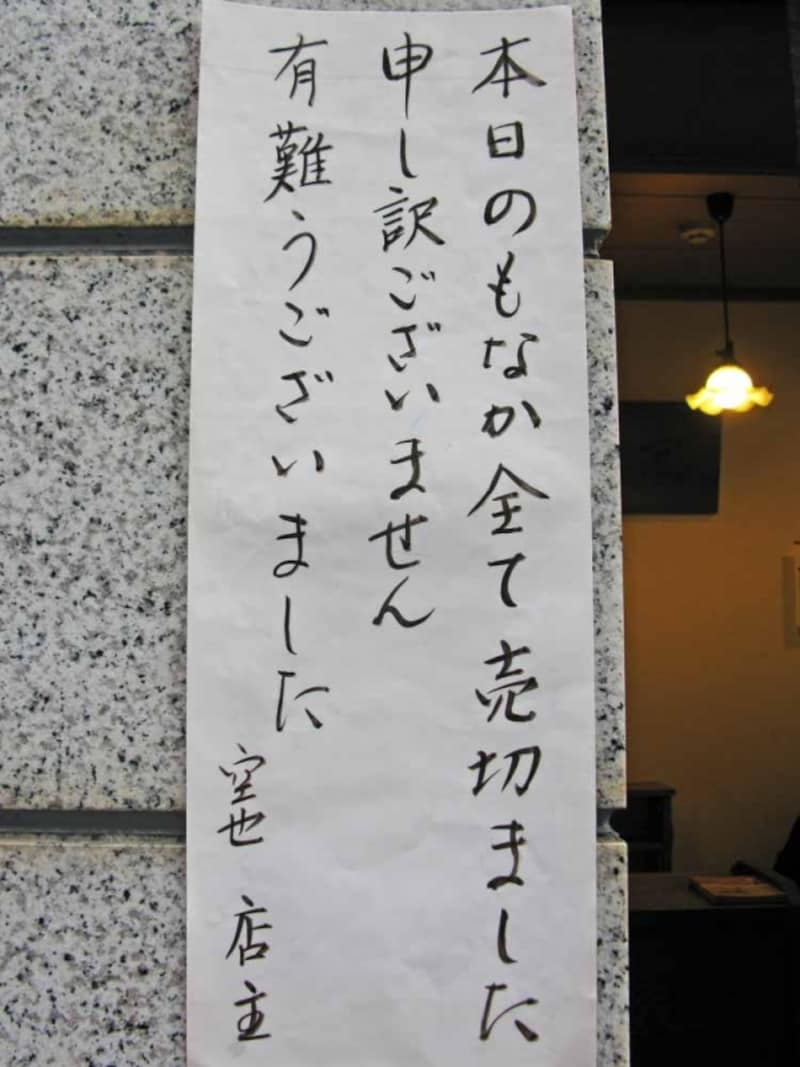 本日のもなか全て売切ました
申し訳ございません
有難うございました
空也 店主